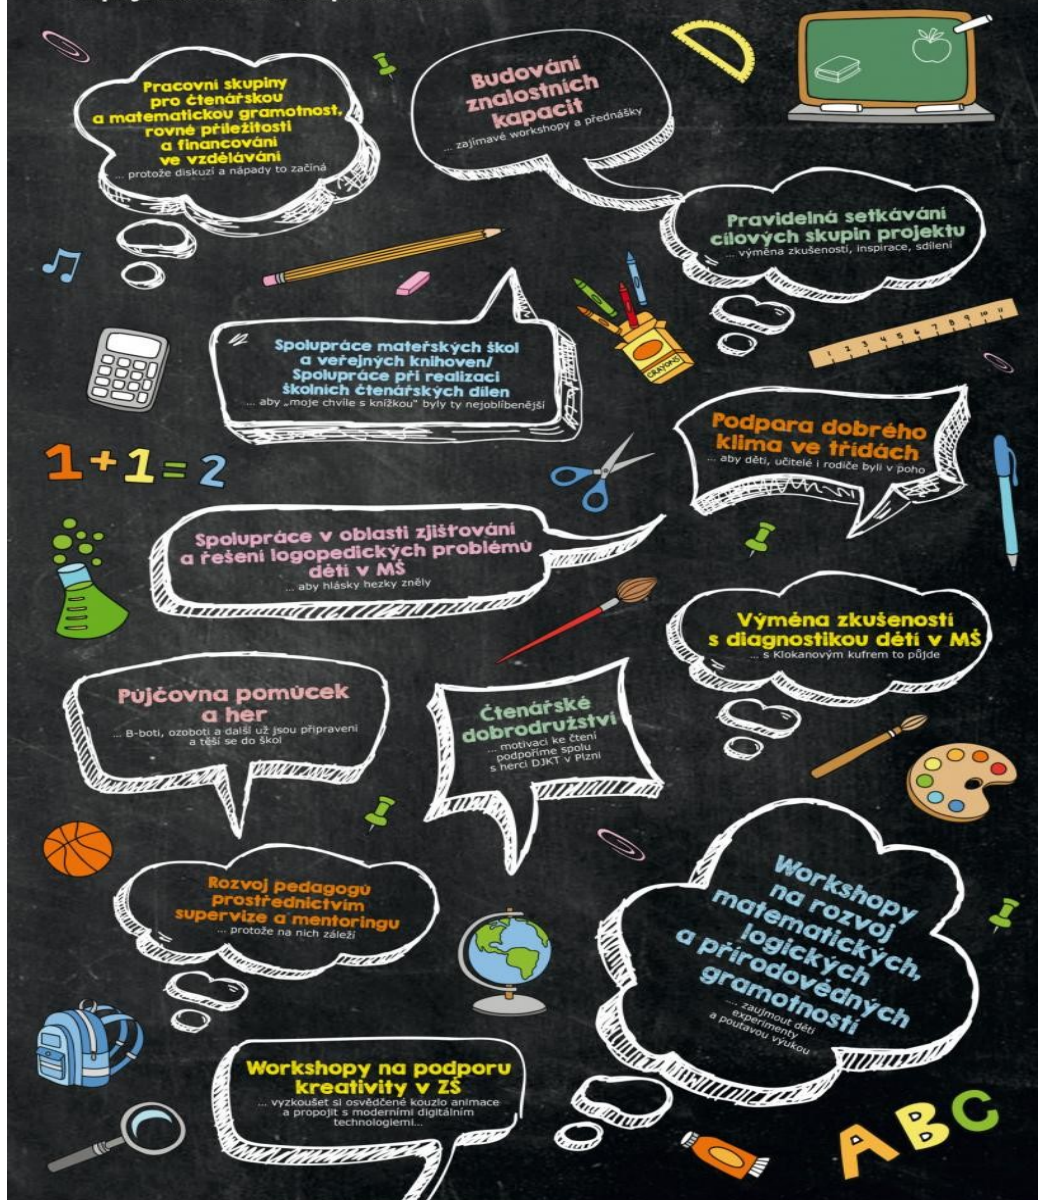 Pracovní skupiny
pro čtenářskou
a matematickou gramotnost,
rovné příležitosti
a financování
ve vzdělávání
... protože diskuzí a nápady to začíná
Budování
znalostních
kapacit
... zajímavé workshopy a přednášky
Pravidelná setkávání
cílových skupin projektu
... výměna zkušeností, inspirace, sdílení
Spolupráce mateřských škol
a veřejných knihoven/
Spolupráce při realizaci
školních čtenářských dílen
... aby „moje chvíle s knížkou" byly ty nejoblíbenější
CRAYONS
1 2 3 4 5 6 7 8 9 10 11
Podpara dobrého
klima ve třídách
... aby děti, učitelé i rodiče byli v poho
1+1=2
Spolupráce v oblasti zjišťování
a řešení logopedických problémů
dětí v MŠ
... aby hlásky hezky zněly
Výměna zkušeností
s diagnostikou dětí v MŠ
... s Klokanovým kufrem to půjde
Půjčovna pomůcek
a her
... B-boti, ozoboti a další už jsou připravení
a těší se do škol
Čtenářské
dobrodružství
... motivaci ke čtení
podpoříme spolu
s herci DJKT v Plzni
Rozvoj pedagogů
prostřednictvím
supervize a mentoringu
... protože na nich záleží
Workshopy
na rozvoj
matematických,
logických
a přírodovědných
gramotností
.... zaujmout děti
experimenty
a poutavou výukou
Workshopy na podporu
kreativity v ZŠ
... vyzkoušet si osvědčené kouzlo animace
a propojit s moderními digitálním
technologiemi...
ABC